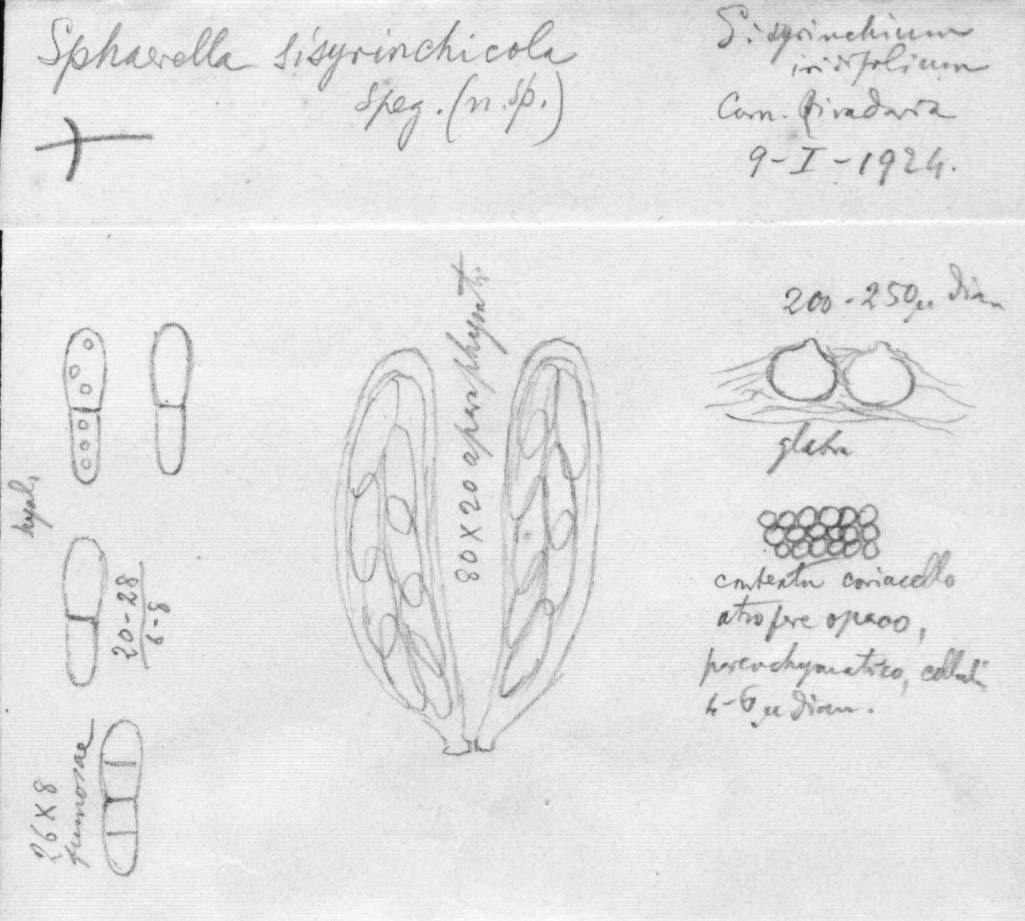 Sphaerella sisyrinchicola
Speg. (n. sp.)
Sisyrinchium
iridifolium
Com. Rivadavia
9-I-1924.
200-250µ diam
glabra
contextu coriacello
atro fere opaco,
parenchymatico, cellulis
4-6 µ diam.
80 X 20 aparaphysati
hyal.
20-28
6-8
26 X 8
fumosae